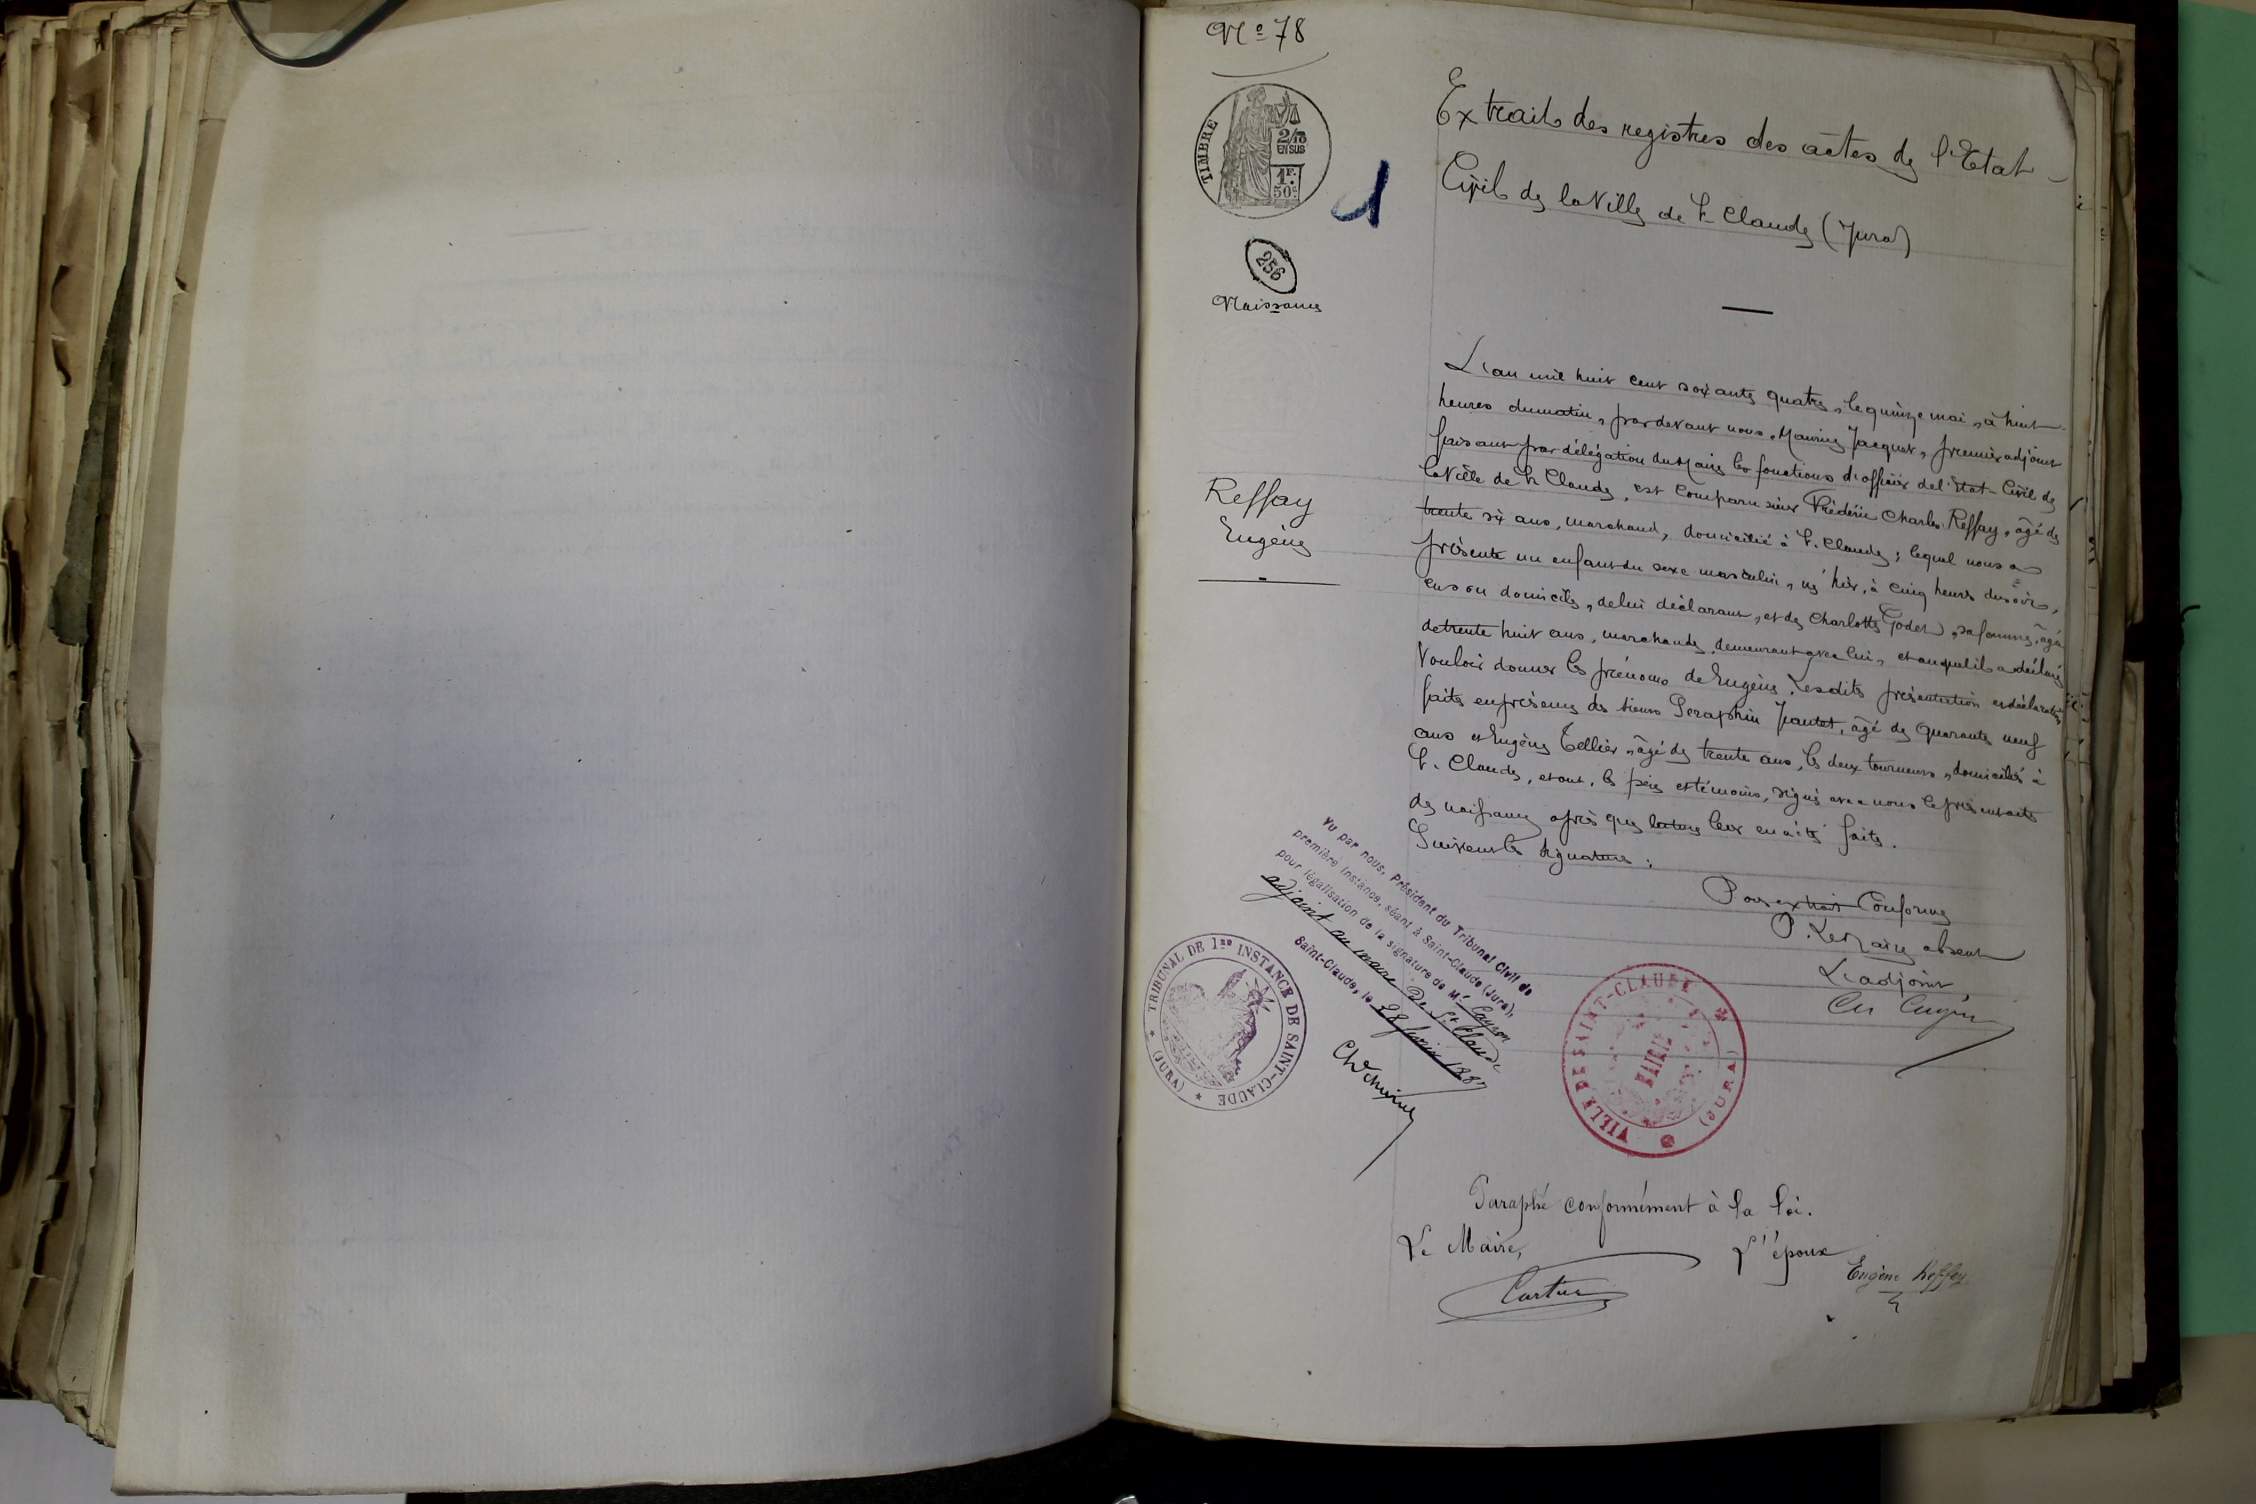 N° 78
TIMBRE
2/10
EN SUS
1F.
50c.
1
256
Naissance
Extrait des registres des actes de l'Etat
Civil de la Ville de St Claude (Jura)
L'an mil huit cent soixante quatre, le quinze mai, à huit
heures du matin, pardevant nous, Jacquet, premier adjoint
faisant par délégation du Maire les fonctions d'officier de l'état-Civil de
la Ville de St Claude, est comparu sieur Frédéric Charles Reffay, âgé de
trente six ans, marchand, domicilié à St. Claude; lequel nous a
présenté un enfant du sexe masculin, né hier, à cinq heures du soir,
en son domicile, de lui déclarant, et de Charlotte Godet, sa femme, âgée
de trente huit ans, marchande, demeurant avec lui, et auquel il a déclaré
vouloir donner les prénoms de Eugène. Lesdites présentation et déclaration
faites en présence des sieurs Seraphin Jantet, âgé de quarante neuf
ans et Eugène Tellier, âgé de trente ans, les deux tourneurs, domiciliés à
St. Claude, et ont, les père et témoins, signé avec nous le présent acte
de naissance après que lecture leur en a été faite.
Suivent les signatures:
Reffay
Eugène
Pour extrait Conforme
P. Le Maire absent
L'adjoint
Vu par nous, Président du Tribunal Civil de
première Instance, séant à Saint-Claude (Jura),
pour légalisation de la signature de Mr
adjoint au maire de St Claude
Saint-Claude, le 28 février 1887
TRIBUNAL DE 1RE INSTANCE DE SAINT-CLAUDE
(JURA)
VILLE DE SAINT-CLAUDE
MAIRIE
(JURA)
Paraphé conformément à la loi.
Le Maire, L'époux
Cartier
Eugène Reffay